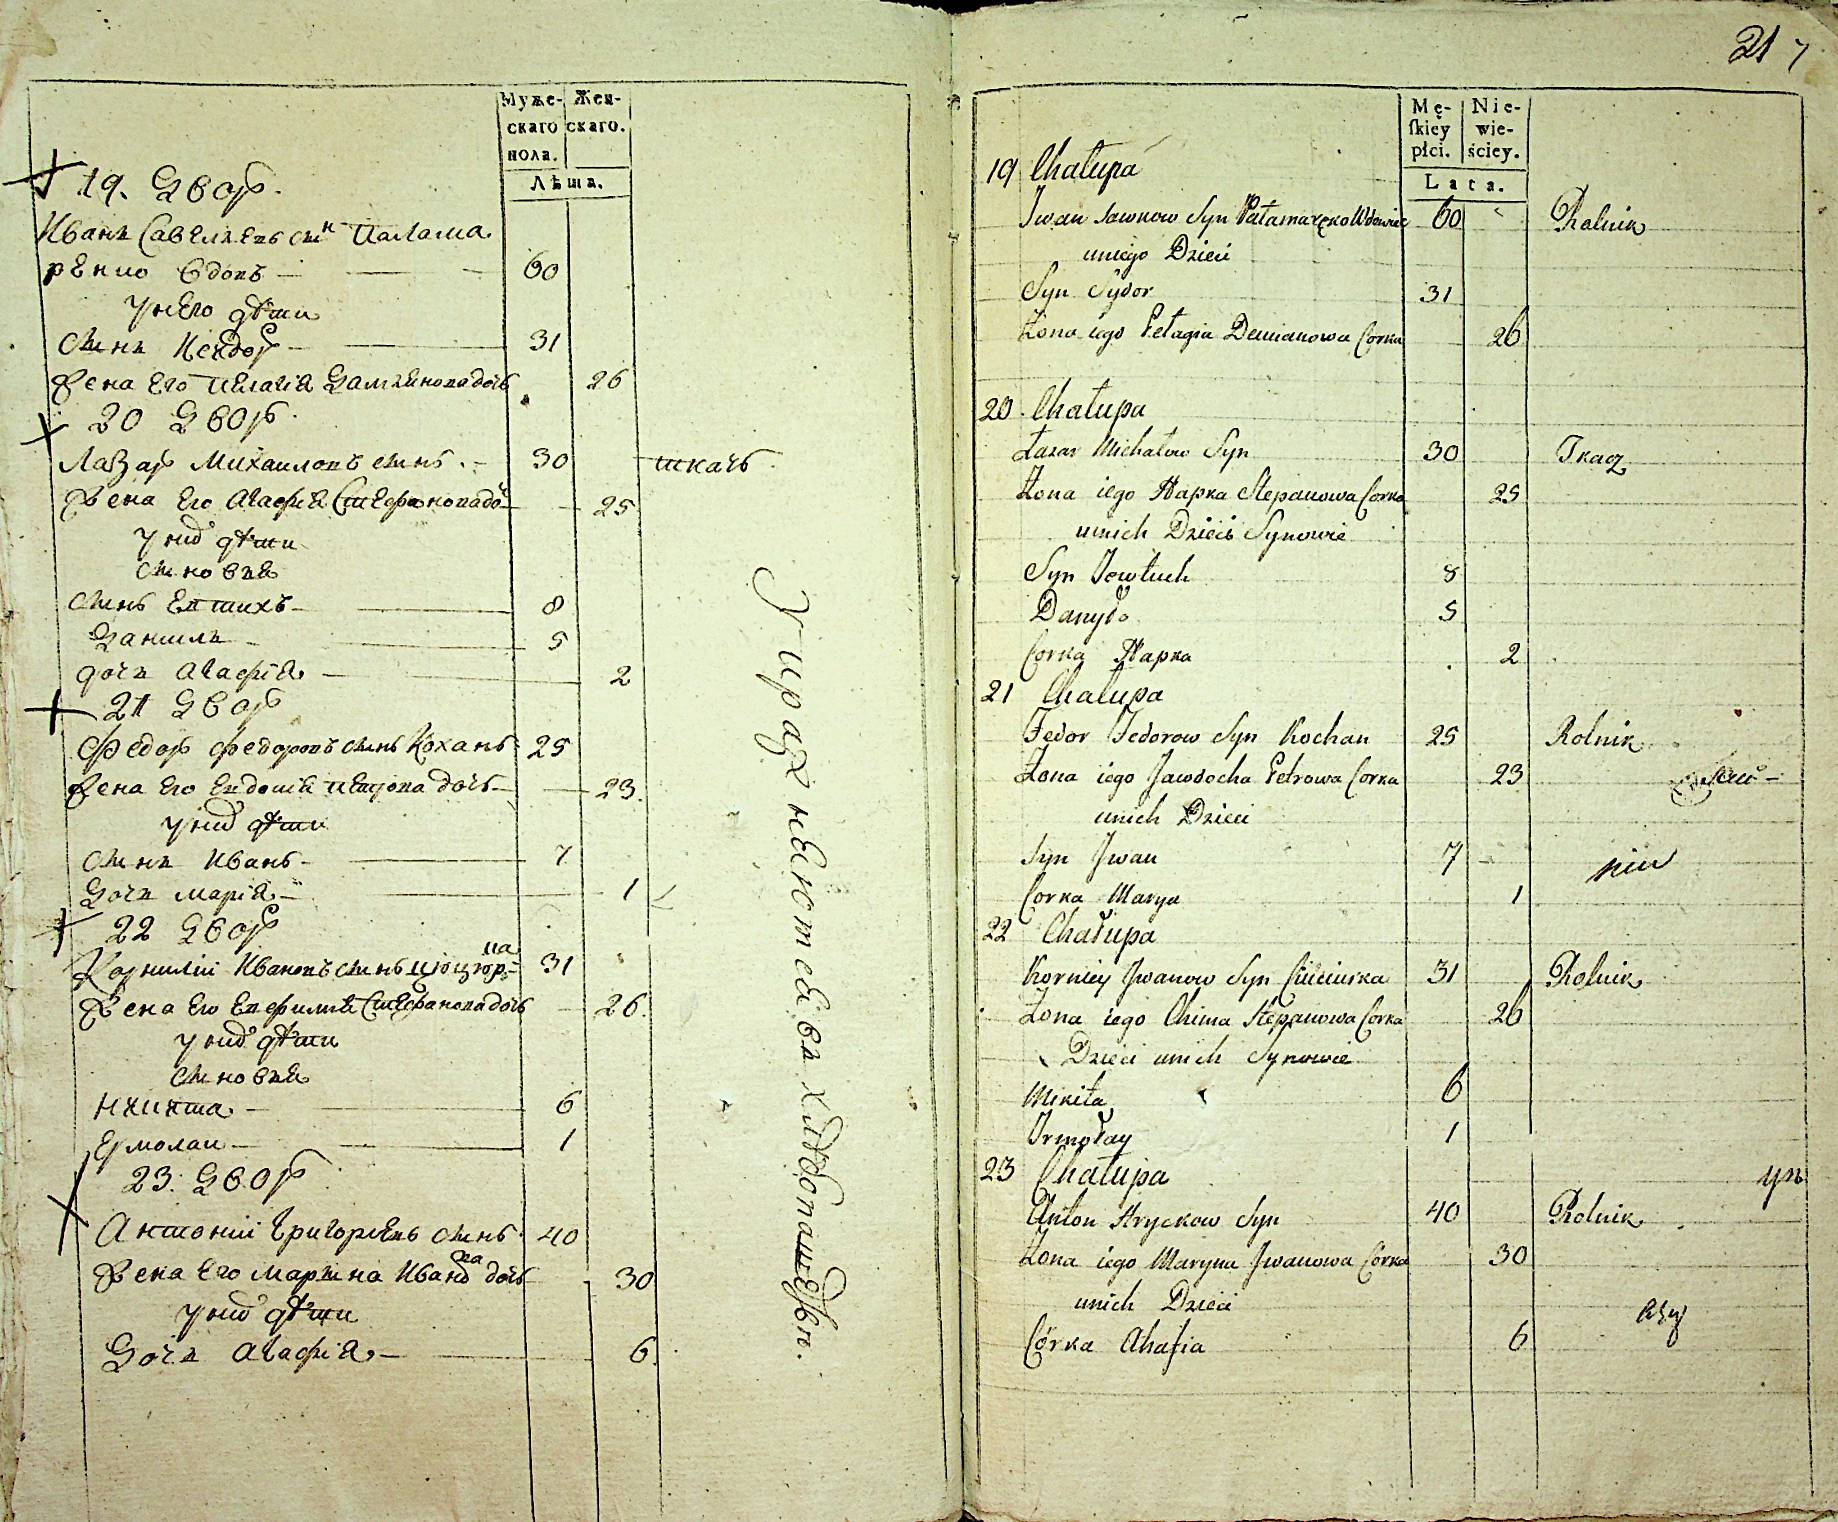 Муже- Жен-
скаго скаго.
пола.
Лѣта.
19. Двор
Иванъ Савелиевъ сын Палама
ренко вдовъ — 60
у него дѣти
сынъ Исидор — 31
Жена Его Пелагія Дамьянова дочь 26
20 Двор
Лазар Михаиловъ сынъ — 30 ткачь
Жена Его Агафія Стефанова до — 25
у них дѣти
сыновья
сынъ Евтихъ — 8
Данилъ — 5
дочь Агафія — 2
21 Двор
Федор Федоровъ сынъ Коханъ 25
Жена Его Евдокія Петрова дочь — 23.
у них дѣти
сынъ Иванъ — 7
Дочь Марія — 1
22 Двор
Корнилій Ивановъ сынъ — 31
Жена Его Евфимія Стефанова дочь 26.
у них дѣти
сыновья
Никита — 6
Ермолаи — 1
23. Двор
Антоній Григориевъ сынъ 40
Жена Его Марина Иванова дочь 30
у них дѣти
Дочь Агафія — 6.
21
Mę- Nie-
ſkiey wie-
płci. ściey.
Lata.
19 Chałupa
Jwan Sawkow Syn Pałamaręko Wdowiec 60 Rolnik
uniego Dzieci
Syn Sydor 31
Żona iego Pełagia Demianowa Corka 26
20 Chałupa
Łazar Michałow Syn 30 Tkacz
Żona iego Hapka Stepanowa Corka 25
unich Dzieci Synowie
Syn Jowtuch 8
Danyło 5
Corka Hapka 2
21 Chałupa
Fedor Fedorow Syn Kochan 25 Rolnik
Żona iego Jawdocha Petrowa Corka 23
unich Dzieci
Syn Jwan 7
Corka Marya 1
22 Chałupa
Korniey Jwanow Syn Ciuciurka 31 Rolnik
Żona iego Chima Stepanowa Corka 26
Dzieci unich Synowie
Mikita 6
Jrmołay 1
23 Chałupa
Anton Hryckow Syn 40 Rolnik
Żona iego Maryna Jwanowa Córka 30
unich Dzieci
Córka Ahafia 6